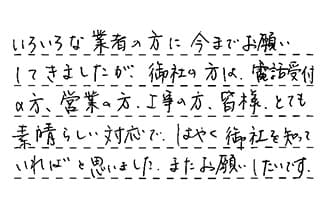 いろいろな業者の方に今までお願い
してきましたが、御社の方は、電話受付
の方、営業の方、工事の方、皆様、とても
素晴らしい対応で、はやく御社を知って
いればと思いました。またお願いしたいです。